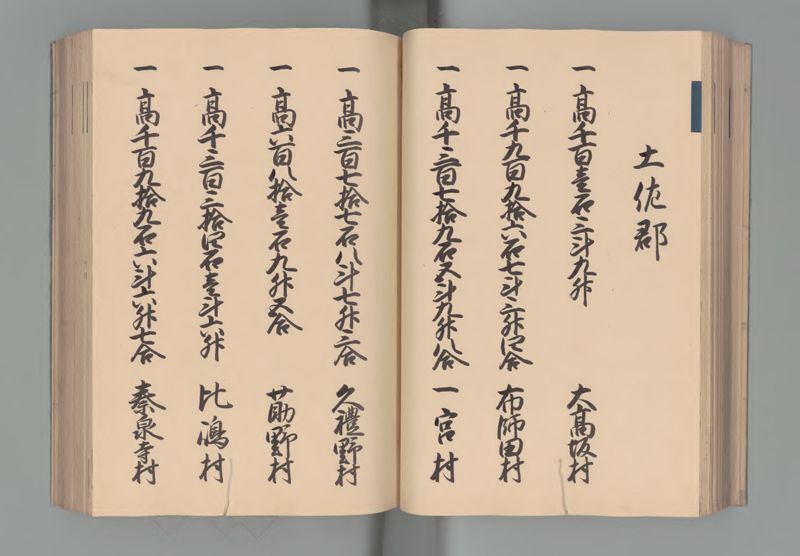 土佐郡
一 高千百壱石三斗九升 大高坂村
一 高千九百九拾六石七斗三升四合 布師田村
一 高千三百七拾九石五斗九升八合 一宮村
一 高三百七拾七石八斗七升三合 久禮野村
一 高六百八拾壱石九升五合 薊野村
一 高千三百三拾四石壱斗六升 比嶋村
一 高千百九拾九石六斗六升七合 秦泉寺村